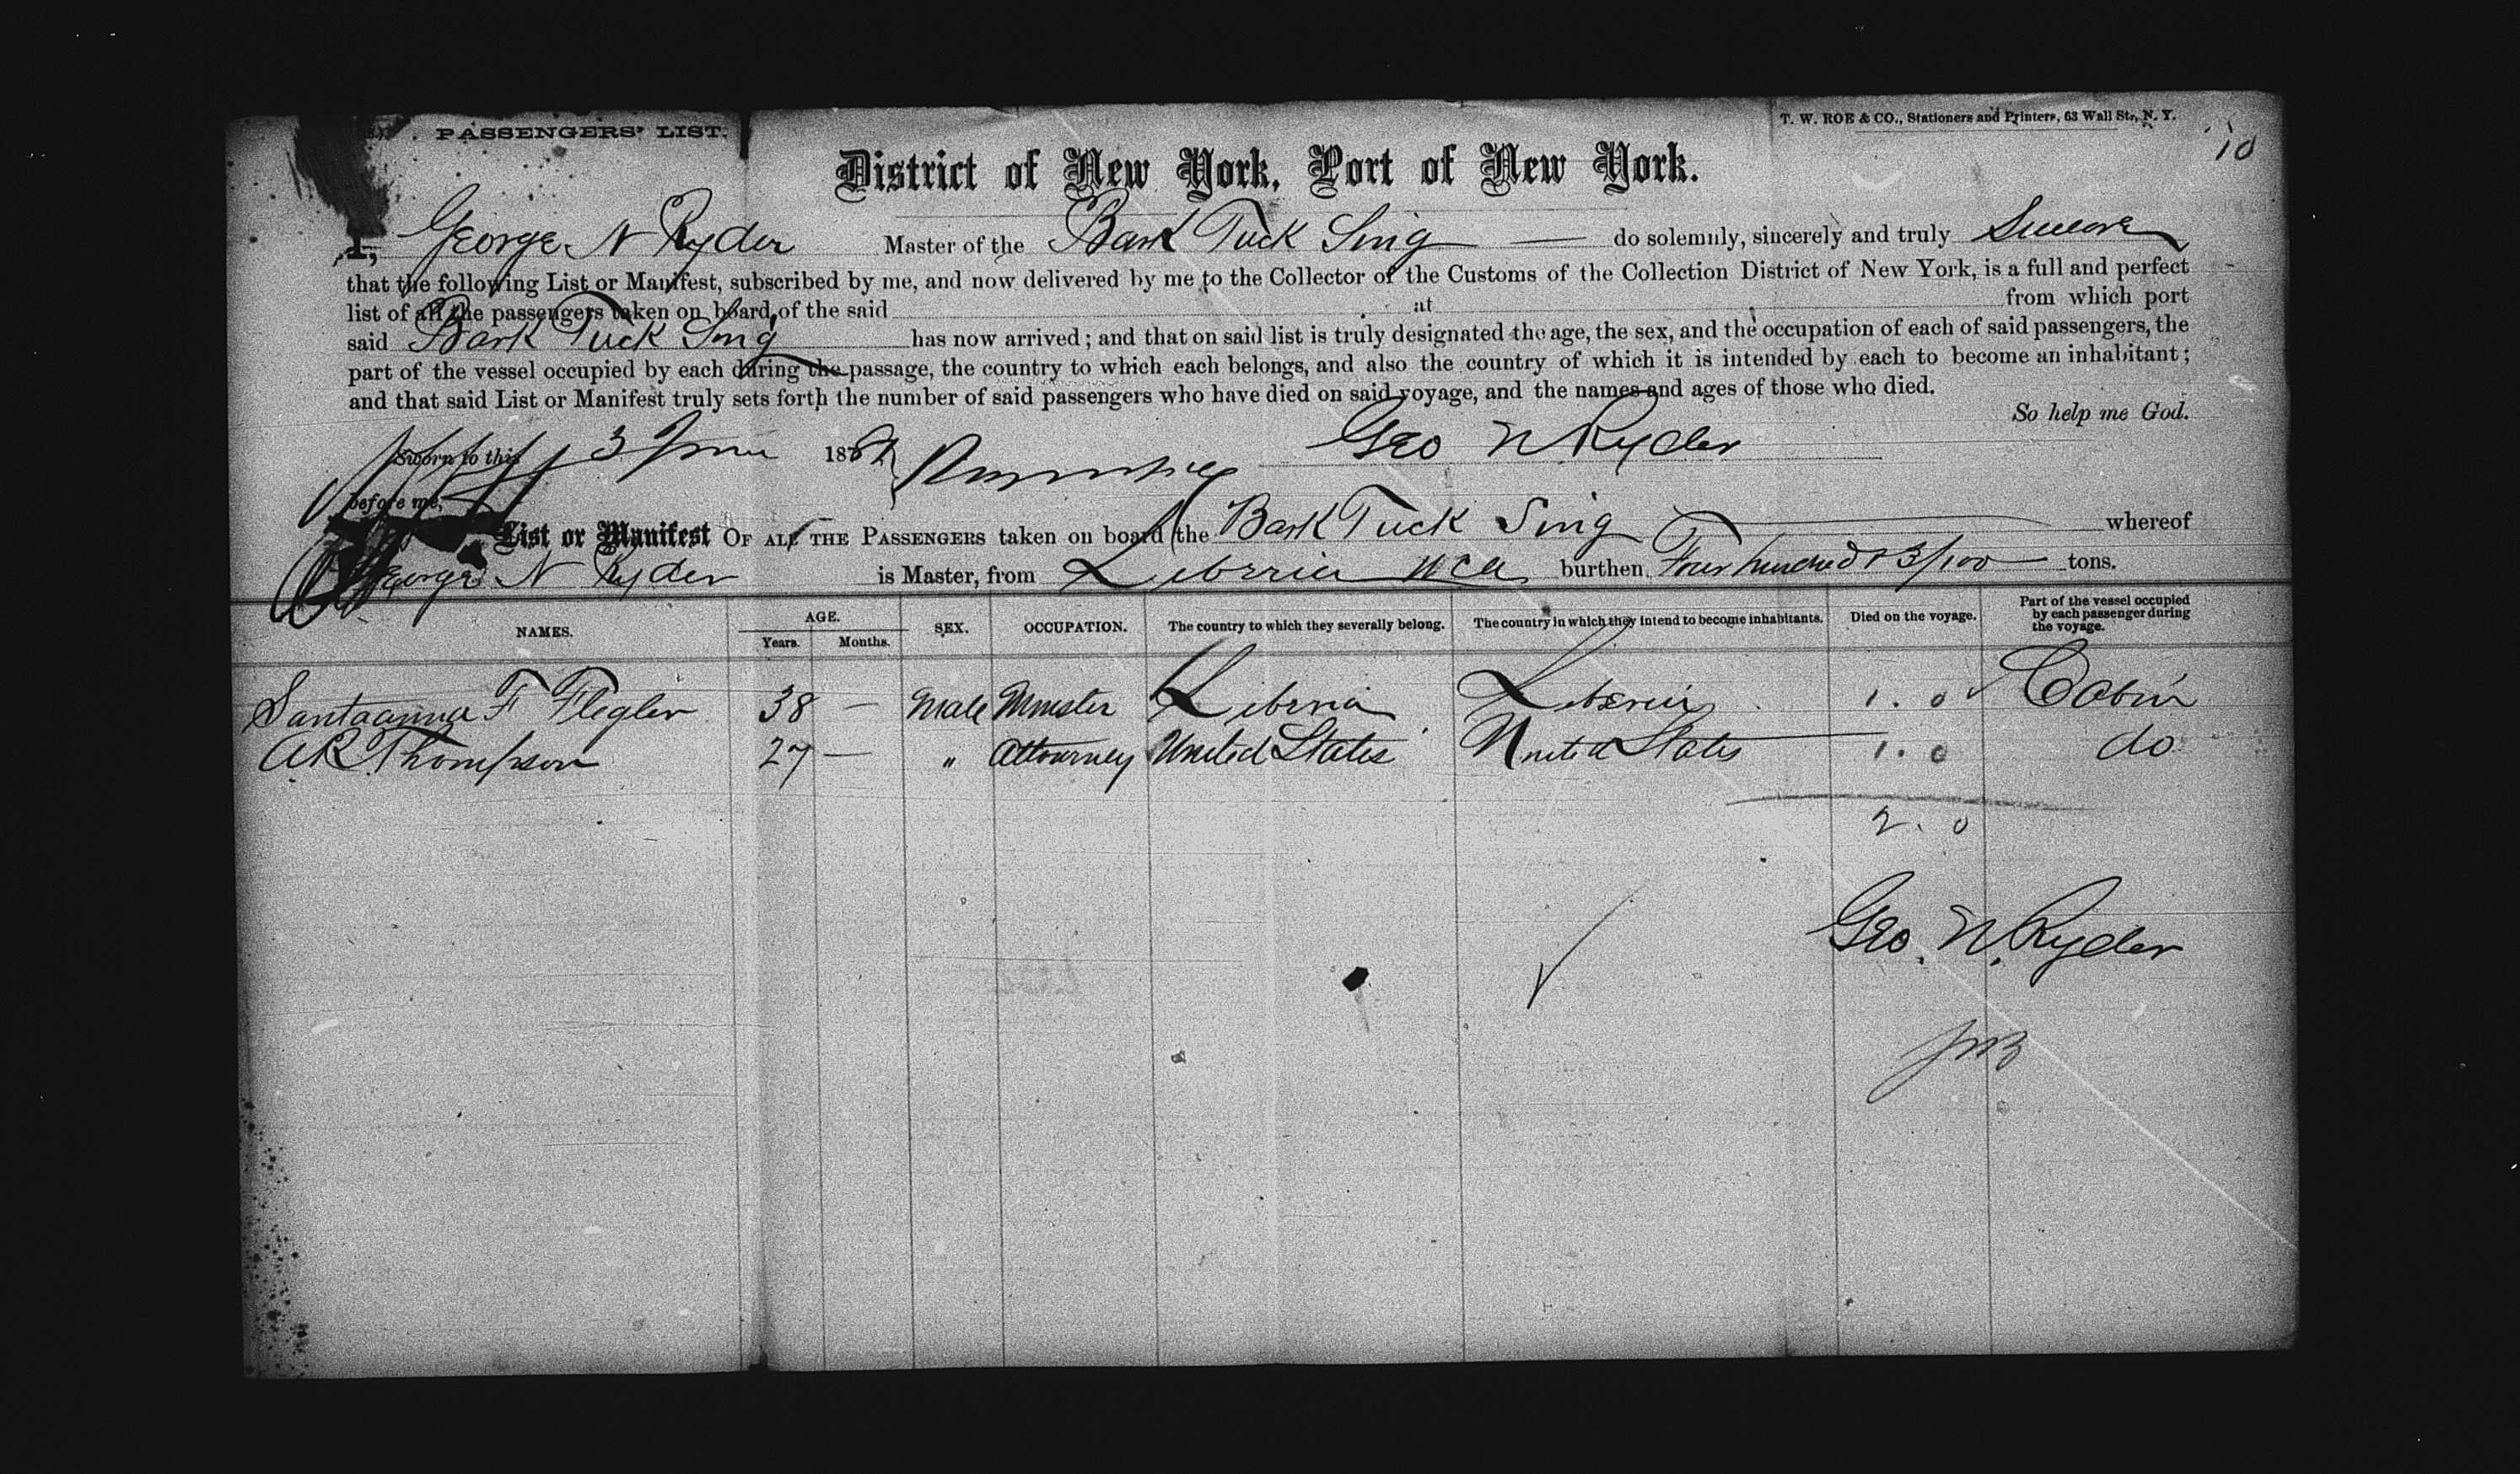 PASSENGERS' LIST.
T. W. ROE & CO., Stationers and Printers, 63 Wall Str., N. Y.
10
District of New York, Port of New York.
I, George N Ryder Master of the Bark Tuck Sing do solemnly, sincerely and truly Swear
that the following List or Manifest, subscribed by me, and now delivered by me to the Collector of the Customs of the Collection District of New York, is a full and perfect
list of all the passengers taken on board of the said at from which port
said Bark Tuck Sing has now arrived; and that on said list is truly designated the age, the sex, and the occupation of each of said passengers, the
part of the vessel occupied by each during the passage, the country to which each belongs, and also the country of which it is intended by each to become an inhabitant;
and that said List or Manifest truly sets forth the number of said passengers who have died on said voyage, and the names and ages of those who died.
So help me God.
Sworn to this 3 June 188 Geo N Ryder
before me,
List or Manifest OF ALL THE PASSENGERS taken on board the Bark Tuck Sing whereof
George N Ryder is Master, from Liberia WCA burthen Four hundred & 3/100 tons.
NAMES. AGE. Years. Months. SEX. OCCUPATION. The country to which they severally belong. The country in which they intend to become inhabitants. Died on the voyage. Part of the vessel occupied by each passenger during the voyage.
Santaanna F Flegler 38 — Male Minister Liberia Liberia 1. 0 Cabin
A.R. Thompson 27 — " Attourney United States United States 1. 0 do
2. 0
Geo. N. Ryder